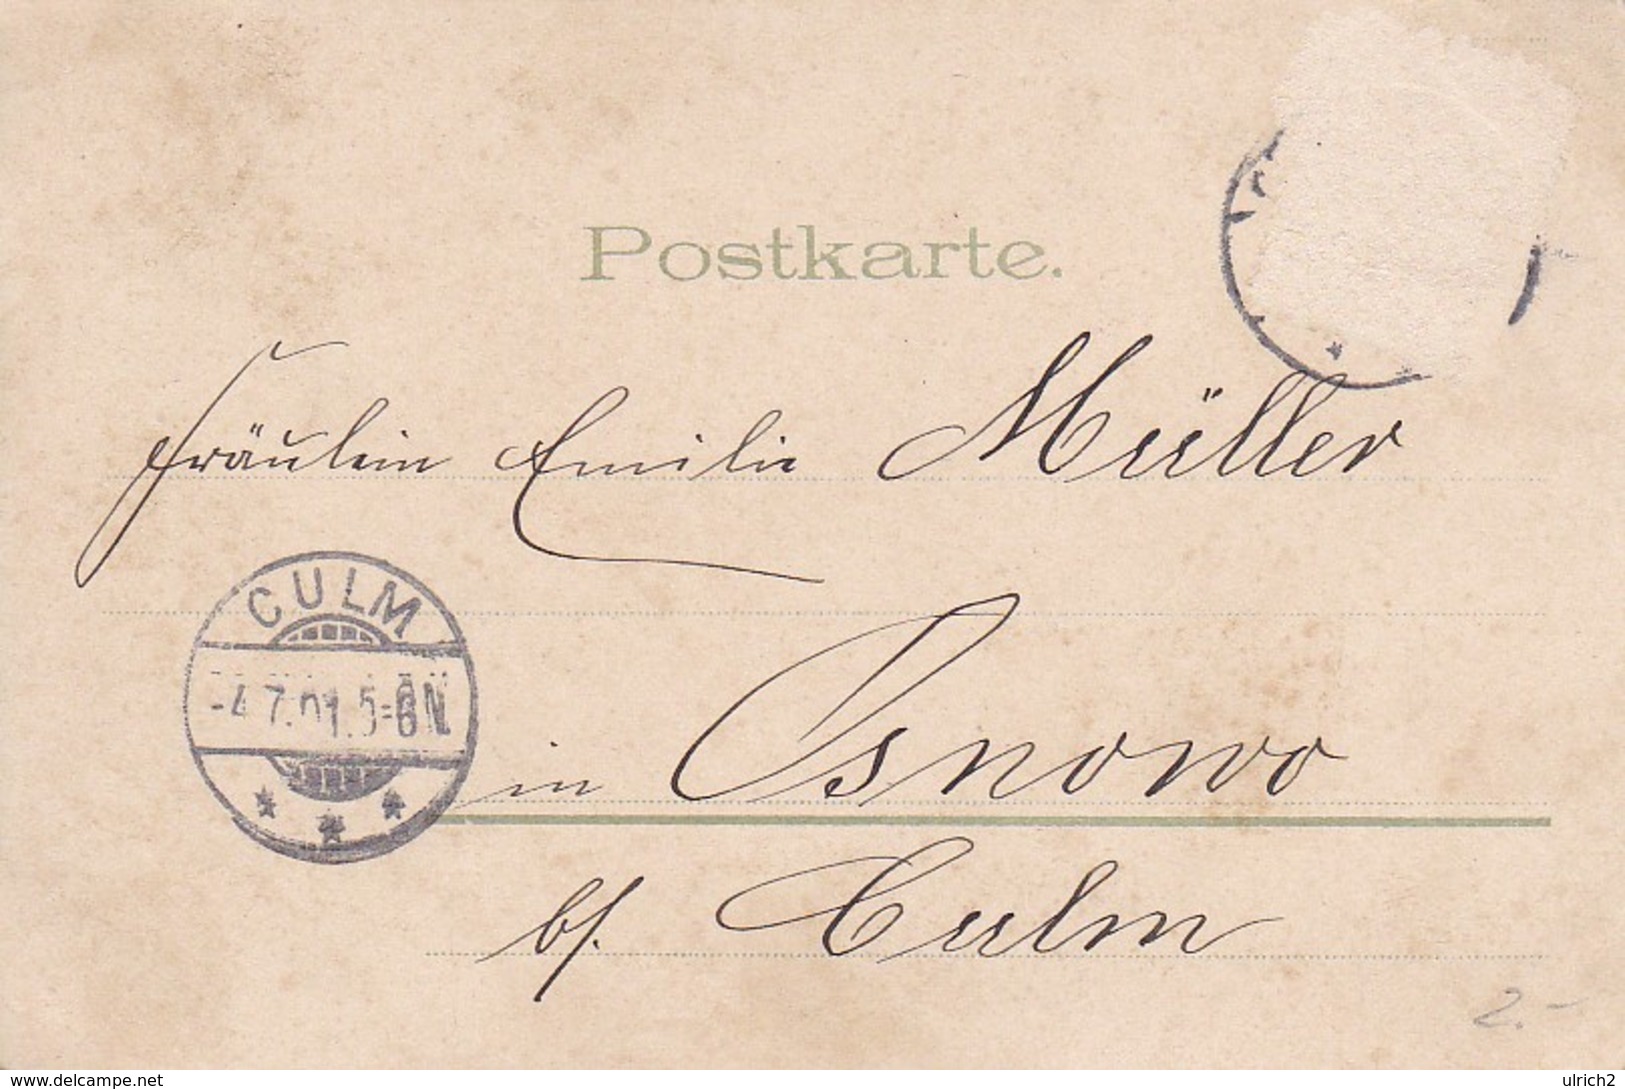 Postkarte.
Fräulein Emilie Müller
CULM
-4.7.01.5-6N.
in Osnowo
bs. Culm
2.-
www.delcampe.net
ulrich2